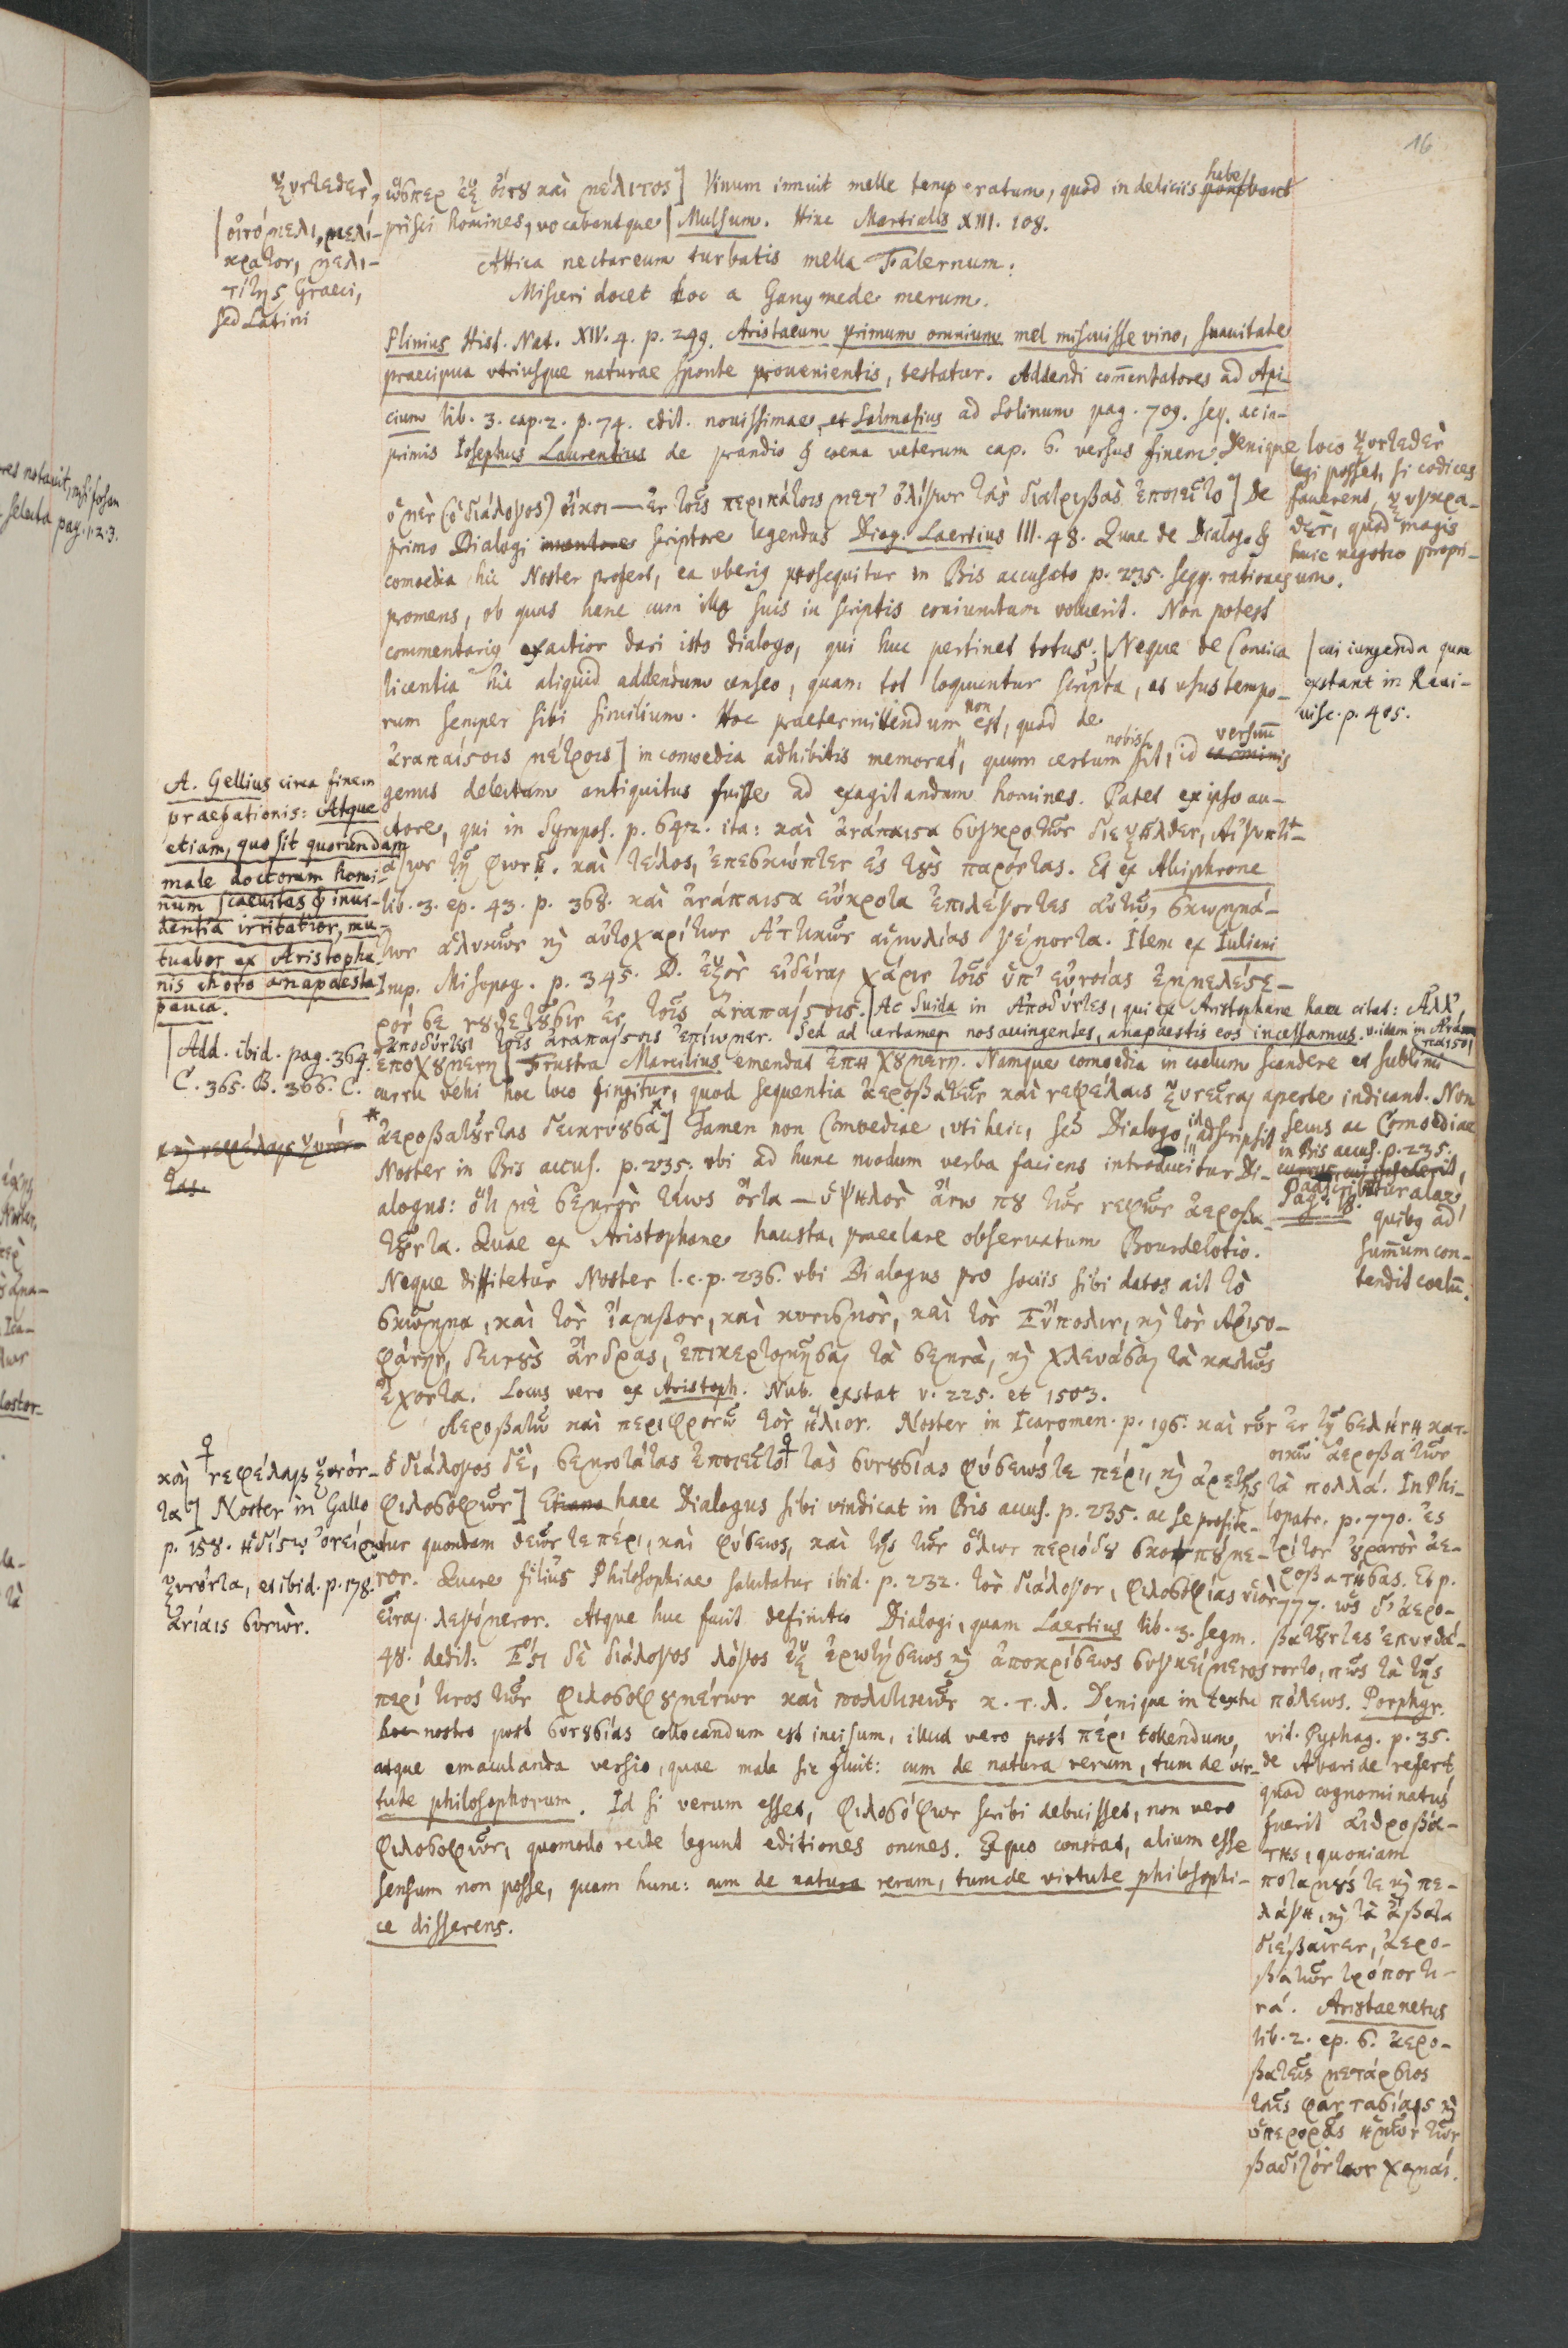 16
ξυντεθὲν, ὥσπερ ἐξ οἴνου καὶ μέλιτος] Vinum innuit melle temperatum, quod in deliciis habe
prisci homines, vocabantque | Mulsum. Hinc Martialis XIII. 108.
| οἰνόμελι, μελί-
κρατον, μελι-
τίτης Graeci,
sed Latini
Attica nectareum turbatis mella Falernum.
Misceri docet hoc a Ganymede merum.
Plinius Hist. Nat. XIV. 4. p. 249. Aristaeum primum omnium mel miscuisse vino, suauitate
praecipua vtriusque naturae sponte prouenientis, testatur. Addendi com̄entatores ad Api-
cium lib. 3. cap. 2. p. 74. edit. nouissimae, et Salmasius ad Solinum pag. 709. seq. ac in-
primis Iosephus Laurentius de prandio & coena veterum cap. 6. versus finem. Denique loco ξυντεθὲν
legi posset, si codices
fauerent, ξυγκρα-
θὲν, quod magis
huic negotio propri-
um.
ὁ μὲν (ὁ διάλογος) οἴκοι — ἐν τοῖς περιπάτοις μετ' ὀλίγων τὰς διατριβὰς ἐποιεῖτο] De
primo Dialogi inuentore scriptore legendus Diog. Laertius III. 48. Quae de Dialogo &
comoedia hic Noster profert, ea vberius prosequitur in Bis accusato p. 235. seqq. rationes
promens, ob quas hanc cum illo suis in scriptis coniunctam voluerit. Non potest
commentarius exactior dari isto dialogo, qui huc pertinet totus; | Neque de Comica
| cui iungenda quae
exstant in Reui-
uisc. p. 405.
licentia hic aliquid addendum censeo, quam tot loquuntur scripta, et vsus tempo-
rum semper sibi similium. Hoc praetermittendum non est, quod de
ἀναπαίστοις μέτροις] in comoedia adhibitis memorat, quum certum nobis sit, id versuum carminis
genus delectum antiquitus fuisse ad exagitandum homines. Patet ex ipso au-
ctore, qui in Sympos. p. 642. ita: καὶ ἀνάπαιστα συγκροτῶν διεξῆλθεν, Αἰγυπτι-
άζων τῇ φωνῇ. καὶ τέλος, ἐπεσκώπτεν ἐς τοὺς παρόντας. Et ex Alciphrone
lib. 3. ep. 43. p. 368. καὶ ἀνάπαιστα εὔκροτα ἐπιλέγοντες αὐτῷ, σκωμμά-
των ἁλυκῶν κ αὐτοχαρίτων Ἀττικῶν αἱμυλίας γέμοντα. Item ex Iuliani
Imp. Misopog. p. 345. D. ἐξὸν εἰδέναι χάριν τοῖς ὑπ' εὐνοίας ἐμμελέσε-
ρόν σε νουθετοῦσιν ἐν τοῖς ἀναπαίστοις. | Ac Suida in Ἀποδύντες, qui ex Aristophane haec citat: Ἀλλ'
ἀποδύντες τοῖς ἀναπαίστοις ἐπίωμεν. Sed ad certamen nos accingentes, anapaestis eos incessamus. v. item in Ἀνά-
παιστοι
A. Gellius circa finem
praefationis: Atque
etiam, quo sit quorundam
male doctorum homi-
num scaeuitas & inui-
dentia irritatior, mu-
tuabor ex Aristopha-
nis choro anapaesta
pauca.
| Add. ibid. pag. 364.
C. 365. B. 366. C.
ἐποχουμένη] Frustra Marcilius emendat ἐπῃχουμένη. Namque comoedia in coelum scandere et sublimi
curru vehi hoc loco fingitur, quod sequentia ἀεροβατεῖν καὶ νεφέλαις ξυνεῖναι aperte indicant. Non
secus ac Comoediae
in Bis accus. p. 235.
adscribuntur alae,
quibus ad
sum̄um con-
tendit coelū.
* καὶ νεφέλαις ξυνόν-
τας
ἀεροβατοῦντας δεικνύουσα *] Tamen non Comoediae, vti heic, sed Dialogo, id adscripsit
Noster in Bis accus. p. 235. vbi ad hunc modum verba faciens introducitur Di-
alogus: ὅτι με σεμνὸν τέως ὄντα — ὑψηλὸν ἄνω που τῶν νεφῶν ἀεροβα-
τοῦντα. Quae ex Aristophane hausta, praeclare obseruatum Bourdelotio.
Neque diffitetur Noster l. c. p. 236. vbi Dialogus pro sociis sibi datos ait τὸ
σκῶμμα, καὶ τὸν ἴαμβον, καὶ κυνισμὸν, καὶ τὸν Εὔπολιν, κ τὸν Ἀριστο-
φάνην, δεινοὺς ἄνδρας, ἐπικερτομῆσαι τὰ σεμνὰ, κ χλευάσαι τὰ καλῶς
ἔχοντα. Locus vero ex Aristoph. Nub. exstat v. 225. et 1503.
Ἀεροβατῶ καὶ περιφρονῶ τὸν ἥλιον. Noster in Icaromen. p. 196. καὶ νῦν ἐν τῇ σελήνῃ κατ-
οικῶ ἀεροβατῶν
τὰ πολλά. In Phi-
lopatr. p. 770. ἐς
τρίτον οὐρανὸν ἀε-
ροβατήσας. Et p.
777. ὡς δ' ἀερο-
βατοῦντες ἐπυνθά-
νοντο, πῶς τὰ τῆς
πόλεως. Porphyr.
vit. Pythag. p. 35.
de Abaride refert
quod cognominatus
fuerit αἰθροβά-
της, quoniam
ποταμούς τε κ πε-
λάγη, κ τὰ ἄβατα
διέβαινεν, ἀερο-
βατῶν τρόπον τι-
νά. Aristaenetus
lib. 2. ep. 6. ἀερο-
βατεῖς μετάρσιος
ταῖς φαντασίαις κ
ὑπερορᾷς ἡμῶν τῶν
βαδιζόντων χαμαί.
καὶ νεφέλαις ξυνόν-
τα] Noster in Gallo
p. 158. ἡδίστῳ ὀνείρῳ
ξυνόντα, et ibid. p. 178.
ἀνίαις συνών.
ὁ διάλογος δὲ, σεμνοτάτας ἐποιεῖτο τὰς συνουσίας φύσεώς τε πέρι, κ ἀρετῆς
φιλοσοφῶν] Etiam haec Dialogus sibi vindicat in Bis accus. p. 235. ac se profite-
tur quondam θεῶν τε πέρι, καὶ φύσεως, καὶ τῆς τῶν ὅλων περιόδου σκοπούμε-
νον. Quare filius Philosophiae salutatur ibid. p. 232. τὸν διάλογον, φιλοσοφίας υἱὸν
εἶναι λεγόμενον. Atque huc facit definitio Dialogi, quam Laertius lib. 3. segm.
48. dedit: Ἔστι δὲ διάλογος λόγος ἐξ ἐρωτήσεως κ ἀποκρίσεως συγκείμενος
περί τινος τῶν φιλοσοφουμένων καὶ πολιτικῶν κ. τ. λ. Denique in textu
hoc nostro post συνουσίας collocandum est incisum, illud vero post πέρι tollendum,
atque emaculanda versio, quae mala sic fluit: cum de natura rerum, tum de vir-
tute philosophorum. Id si verum esset, φιλοσόφων scribi debuisset, non vero
φιλοσοφῶν, quomodo recte legunt editiones omnes. Ex quo constat, alium esse
sensum non posse, quam hunc: cum de natura rerum, tum de virtute philosophi-
ce disserens.